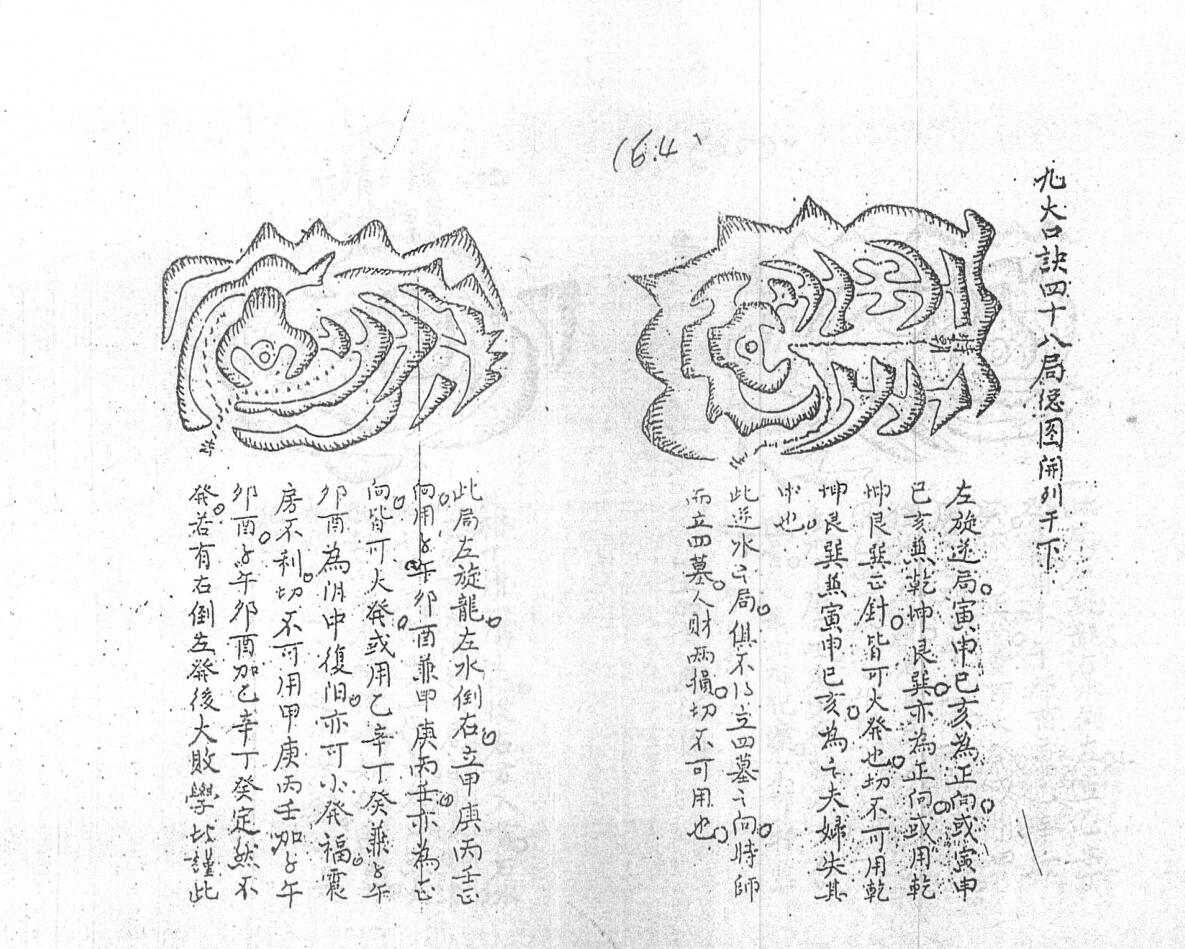 (6.4)
九大口訣四十八局总图開列于下
左旋逆局寅申巳亥為正向或寅申
巳亥兼乾坤艮巽亦為正向或用乾
坤艮巽正針皆可大發也切不可用乾
坤艮巽兼寅申巳亥為之夫婦失其
中也
此逆水之局俱不以立四墓之向時師
而立四墓人財兩損切不可用也
此局左旋龍左水倒右立甲庚丙壬正
向用子午卯酉兼甲庚丙壬亦為正
向皆可大發或用乙辛丁癸兼子午
卯酉為阴中復阳亦可小發福震
房不利切不可用甲庚丙壬加子午
卯酉子午卯酉加乙辛丁癸定然不
發若有右倒左發後大敗學比謹此